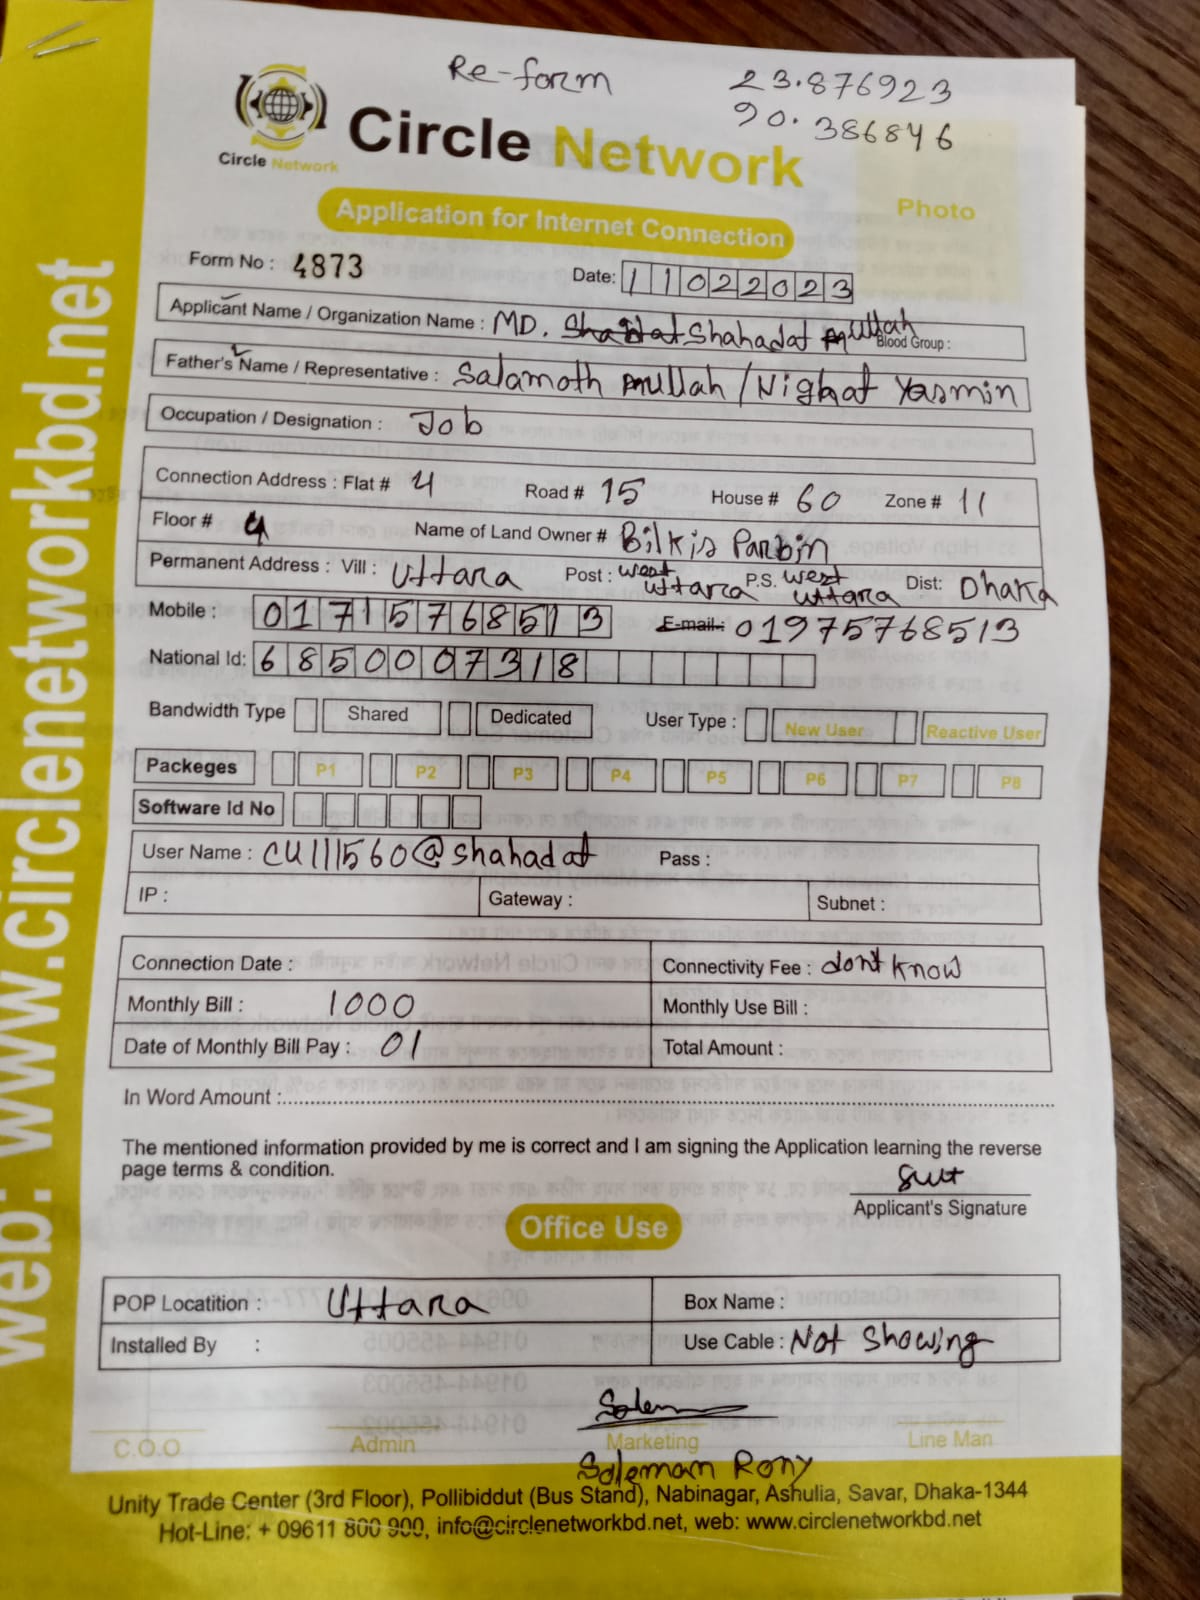 Re-form
23.876923
90.386846
Circle Network
Circle Network
Photo
Application for Internet Connection
Form No : 4873
Date: 11022023
Applicant Name / Organization Name : MD. Shahadat mullah
Blood Group :
Father's Name / Representative : Salamoth mullah / Nighat Yasmin
Occupation / Designation : Job
Connection Address : Flat # 4 Road # 15 House # 60 Zone # 11
Floor # 4 Name of Land Owner # Bilkis Parbin
Permanent Address : Vill : Uttara Post : west uttara P.S. west uttara Dist: Dhaka
Mobile : 01715768513 E-mail : 01975768513
National Id: 6850007318
Bandwidth Type Shared Dedicated User Type : New User Reactive User
Packeges P1 P2 P3 P4 P5 P6 P7 P8
Software Id No
User Name : CU111560@shahadat Pass :
IP : Gateway : Subnet :
Connection Date : Connectivity Fee : dont know
Monthly Bill : 1000 Monthly Use Bill :
Date of Monthly Bill Pay : 01 Total Amount :
In Word Amount :
The mentioned information provided by me is correct and I am signing the Application learning the reverse
page terms & condition.
Applicant's Signature
Office Use
POP Locatition : Uttara Box Name :
Installed By : Use Cable : Not showing
C.O.O Admin Marketing Line Man
Soleman Rony
Unity Trade Center (3rd Floor), Pollibiddut (Bus Stand), Nabinagar, Ashulia, Savar, Dhaka-1344
Hot-Line: + 09611 800 900, info@circlenetworkbd.net, web: www.circlenetworkbd.net
web: www.circlenetworkbd.net